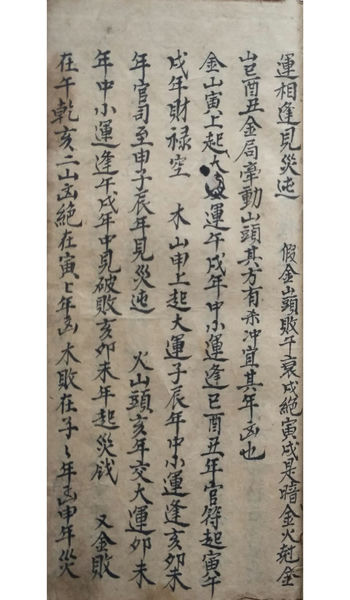 運相逢見災迍　假金山頭敗午衰戌絕寅戌是暗金火尅金
山巳酉丑金局牽動山頭其方有杀冲宜其年凶也
金山寅上起大運午戌年中小運逢巳酉丑年官符起寅午
戌年財禄空　木山申上起大運子辰年中小運逢亥卯未
年官司至申子辰年見災迍　火山頭亥年交大運卯未
年中小運逢午戌年中見破敗亥卯未年起災　又金敗
在午乾亥二山凶絕在寅〻年凶木敗在子〻年凶申年災